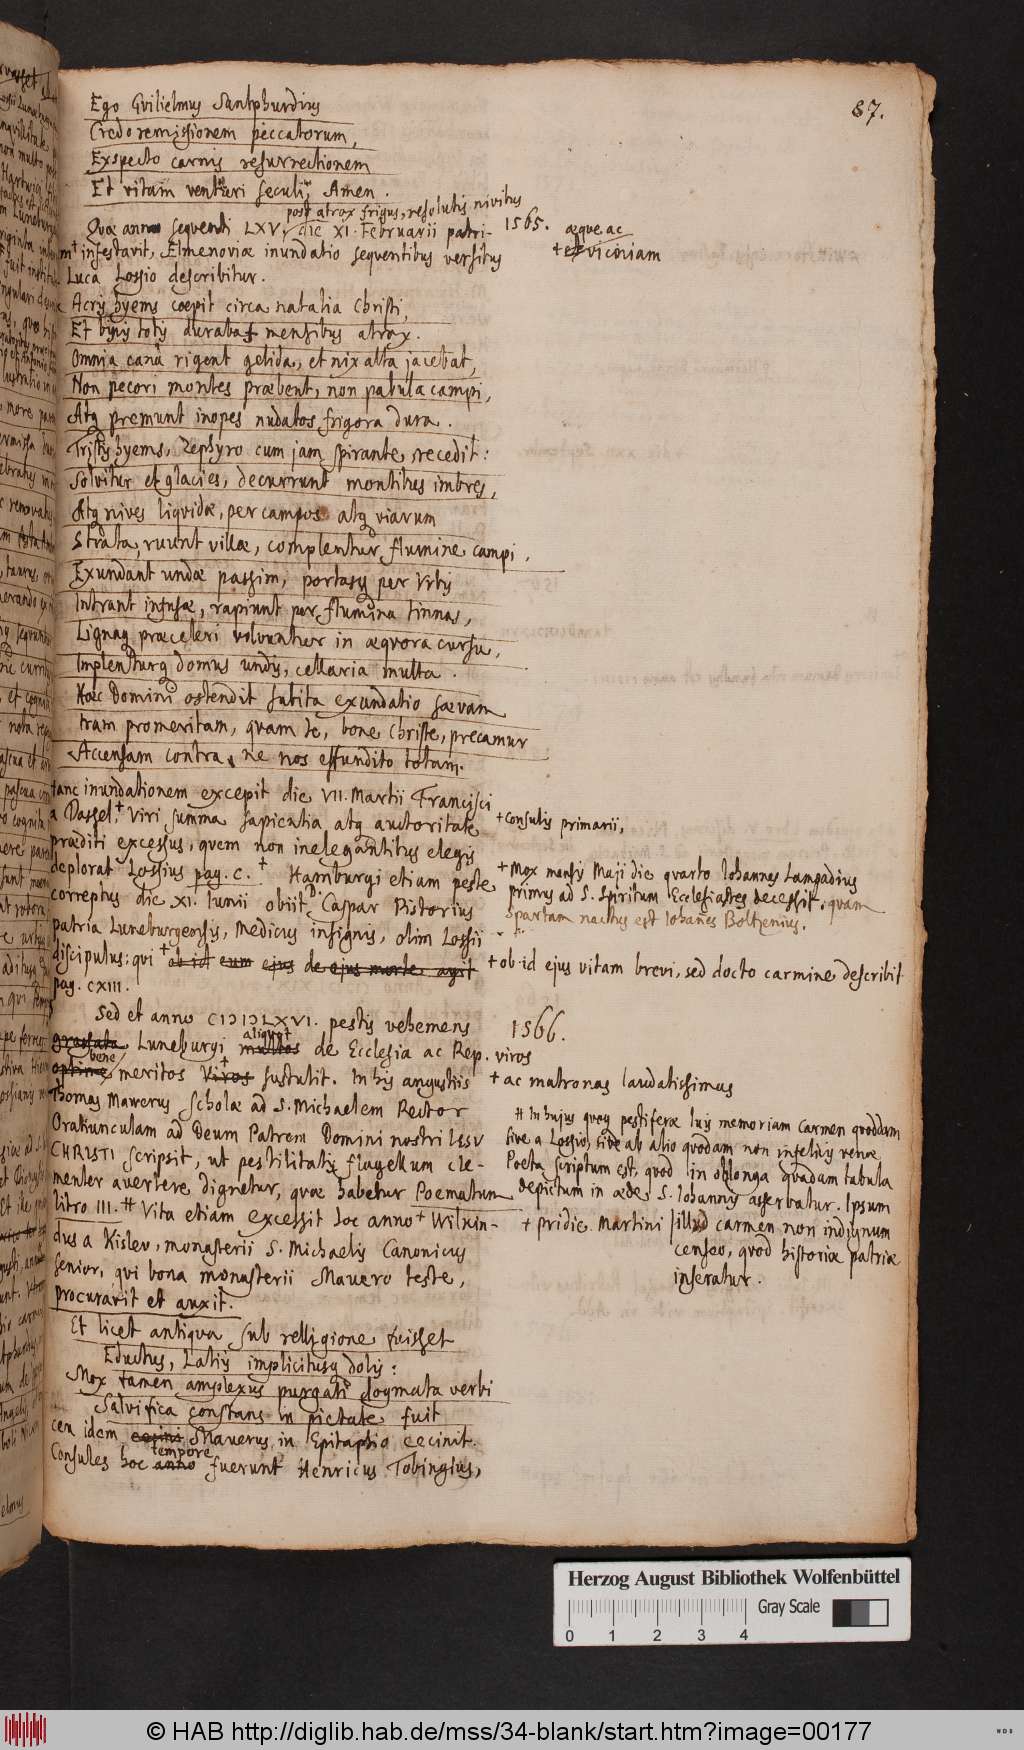 87.
Ego Gvilielmus Santphurdius
Credo remissionem peccatorum,
Exspecto carnis resurrectionem
Et vitam venturi seculi, Amen.
post atrox frigus, resolutis nivibus
Quae anno sequenti LXV, die XI. Februarii patri-
1565.
am infestavit, Elmenoviae inundatio sequentibus versibus
aeque ac
+ viciniam
Luca Lossio describitur.
Acris hyems coepit circa natalia Christi,
Et binis totis durabat mensibus atrox.
Omnia cana rigent gelida, et nix alta jacebat,
Non pecori montes praebent, non pabula campi,
Atq premunt inopes nudatos frigora dura.
Tristis hyems, Zephyro cum jam spirante, recedit:
Solvitur et glacies, decurrunt montibus imbres,
Atq nives liqvidae, per campos atq viarum
Strata, ruunt villae, complentur flumine campi,
Exundant undae passim, portasq per Urbis
Intrant infusae, rapiunt per flumina linnas,
Lignaq praeceleri volvuntur in aeqvora cursu,
Implenturq domus undis, cellaria multa.
Haec Domini ostendit subita exundatio saevam
Iram promeritam, quam te, bone Christe, precamur
Accensam contra, ne nos effundito totam.
Hanc inundationem excepit die VII. Martii Francisci
a Dassel, + viri summa sapientia atq auctoritate
+ Consulis primarii,
praediti excessus, quem non inelegantibus elegis
deplorat Lossius pag. C. + Hamburgi etiam peste
+ Mox mensis Maji die quarto Iohannes Lampadius
primus ad S. Spiritum Ecclesiastes decessit, quam
Spartam nactus est Iohanes Boltzenius.
correptus die XI. Iunii obiit D. Caspar Pistorius
patria Luneburgensis, Medicus insignis, olim Lossii
discipulus: qui + ob id eum ejus de ejus morte agit
+ ob id ejus vitam brevi, sed docto carmine describit
pag. CXIII.
Sed et anno CIↃIↃLXVI. pestis vehemens
1566.
grassata Luneburgi multos aliquot de Ecclesia ac Rep. viros
optime bene meritos viros + sustulit. In his angustiis
+ ac matronas laudatissimas
Thomas Mawerus Scholae ad S. Michaelem Rector
Oratiunculam ad Deum Patrem Domini nostri IESU
CHRISTI scripsit, ut pestilitatis flagellum cle-
menter avertere dignetur, quae habetur Poematum
libro III. # Vita etiam excessit hoc anno + Wilkin-
# In hujus quoq pestiferae luis memoriam carmen quoddam
sive a Lossio, sive ab alio quodam non infelicis venae
Poeta scriptum est, quod in oblonga quadam tabula
depictum in aede S. Iohannis asservatur. Ipsum
illud carmen non indignum
censeo, quod historiae patriae
inseratur.
+ pridie Martini
dus a Kislev, monasterii S. Michaelis Canonicus
senior, qui bona monasterii Mavero teste,
procuravit et auxit.
Et licet antiqva sub relligione fuisset
Eductus, Latiis implicitusq dolis:
Mox tamen amplexus purgati dogmata verbi
Salvifica constans in pietate fuit
ceu idem cecinit Maverus in Epitaphio cecinit.
Consules hoc anno tempore fuerunt Henricus Tobingius,
Herzog August Bibliothek Wolfenbüttel
Gray Scale
0 1 2 3 4
© HAB http://diglib.hab.de/mss/34-blank/start.htm?image=00177